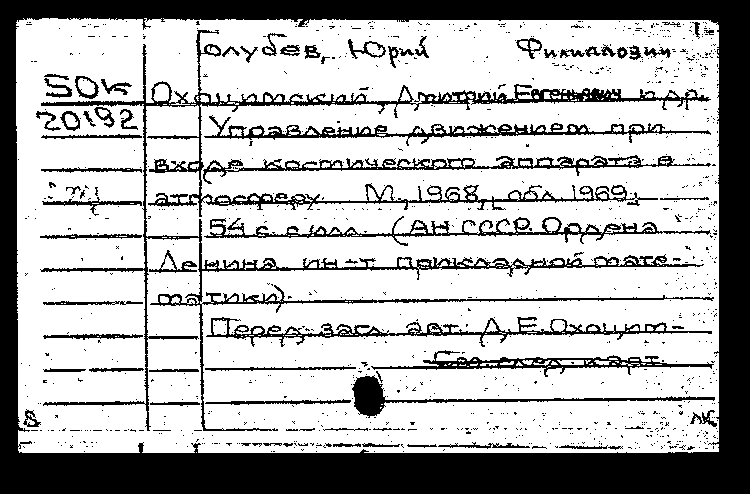 Голубев, Юрий Филиппович
50к Охоцимский, Дмитрий Евгеньевич и др.
20192 Управление движением при
входе космического аппарата в
атмосферу. М., 1968, [обл. 1969].
54 с. с илл. (АН СССР. Ордена
Ленина ин-т прикладной мате-
матики).
Перед загл. авт.: Д.Е. Охоцим-
См. след. карт.
8 ЛК